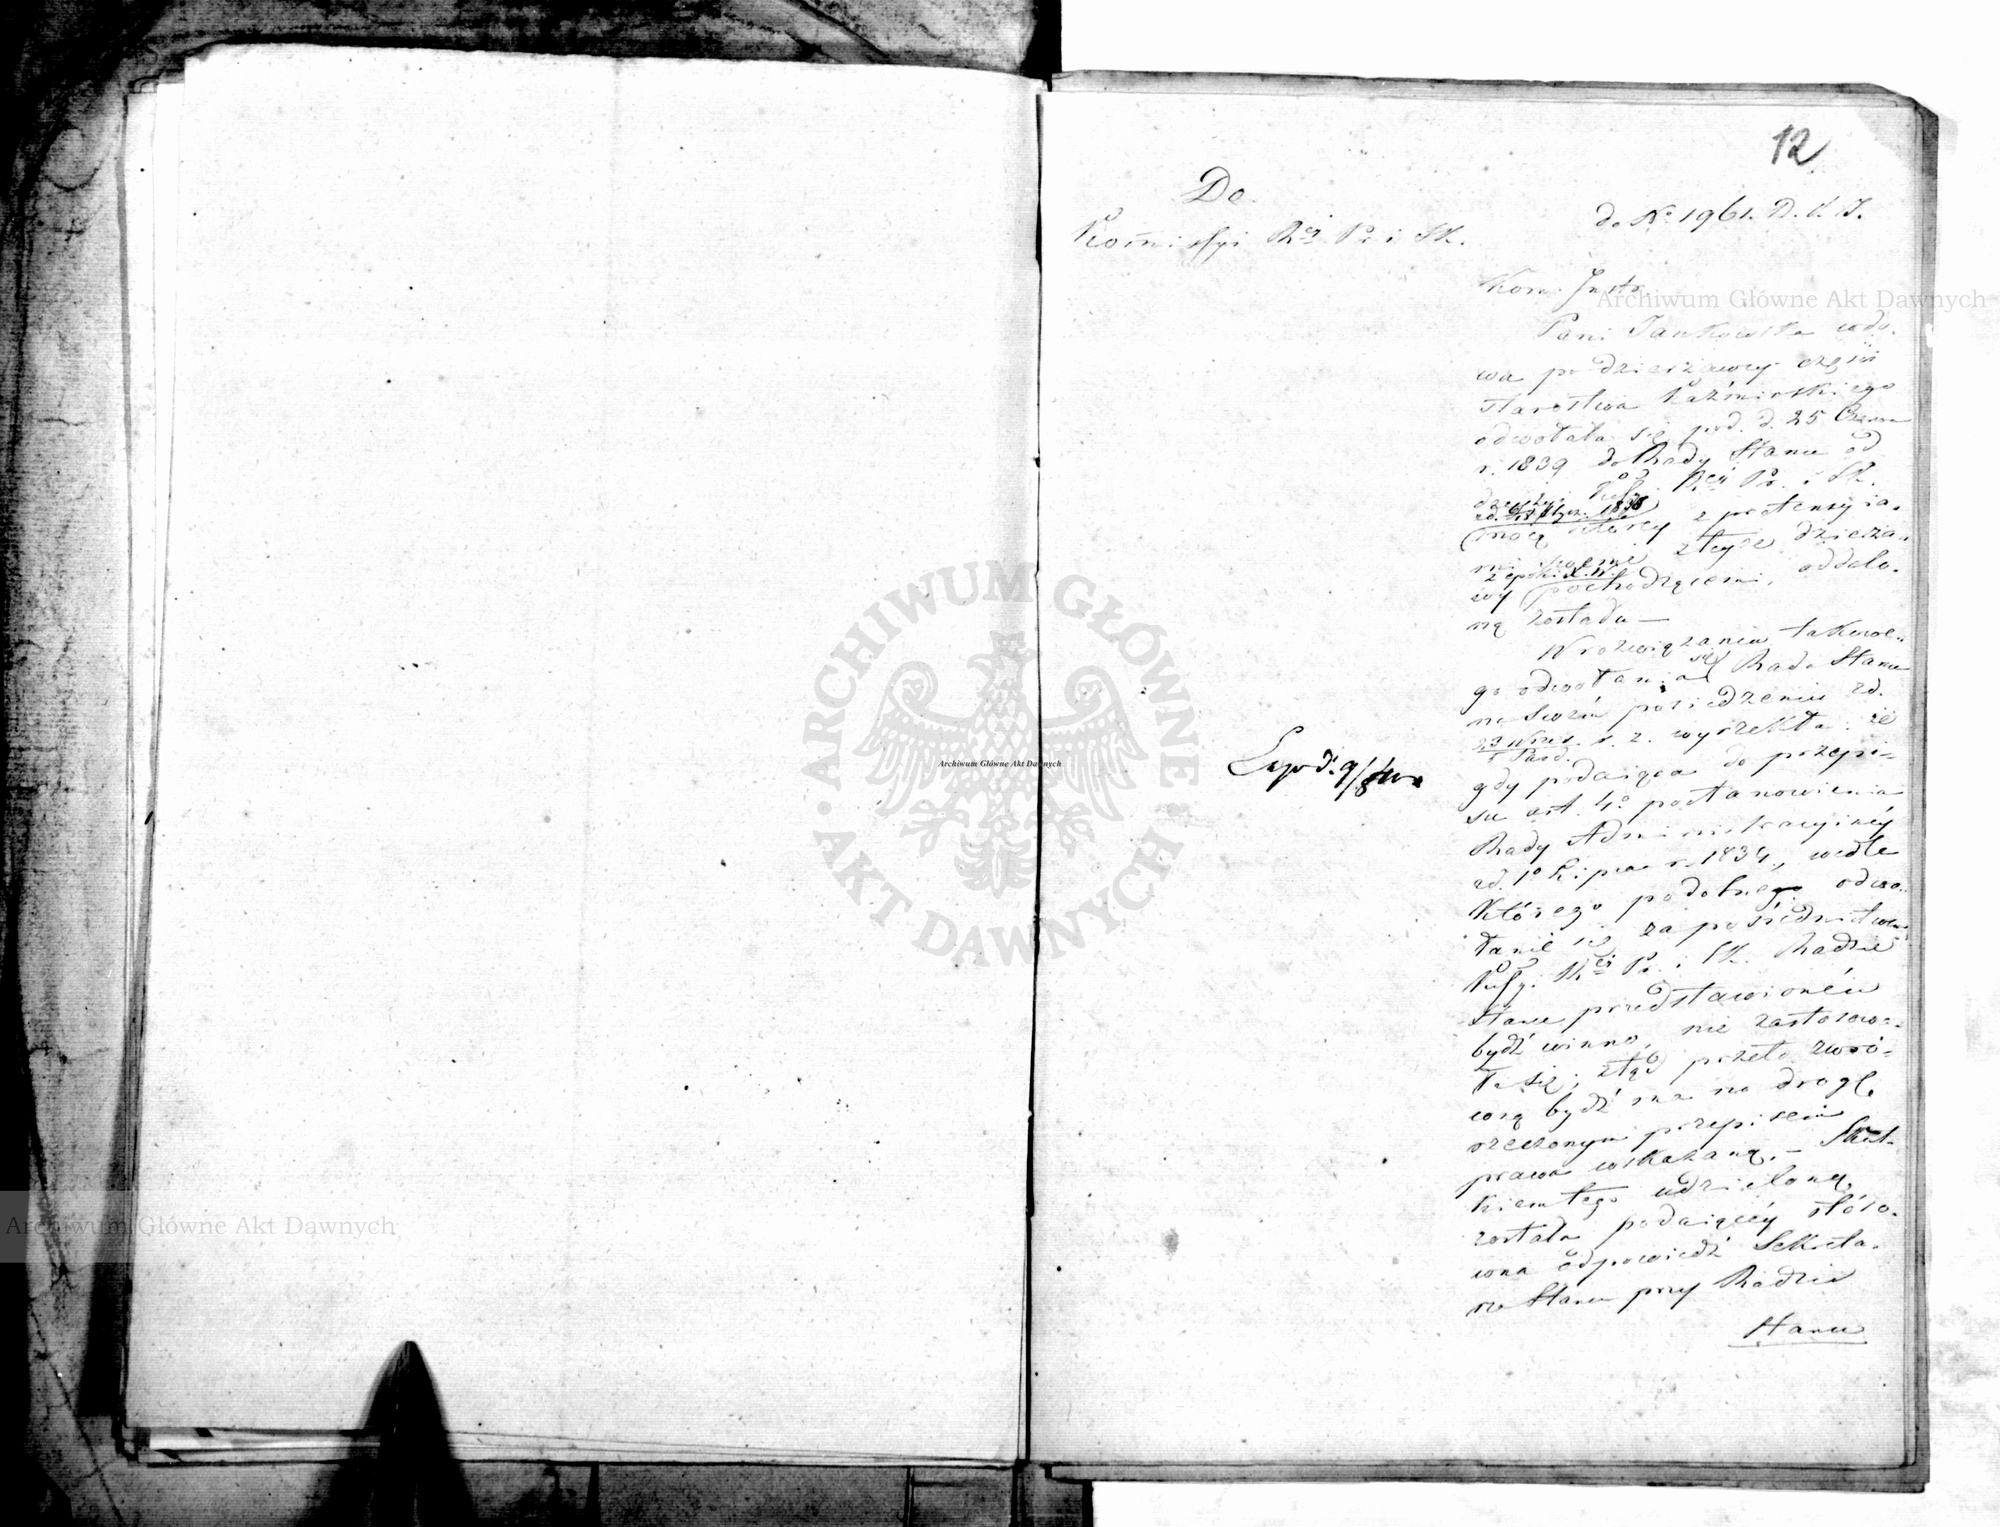 12
Do
Kommissyi Rz. Pr. i Sk.
do No 1961. D. K. J.
Kom. Instr.
Pani Jankowska wdo-
wa po dzierżawcy części
starostwa Kaźmirskiego
odwołała się pod d. 25 Czerw
r. 1839 do Rady Stanu od
decyzyi Kissyi Rz. Pr. i Sk.
mocą której z pretensyia-
mi swemi z tejże dzierża-
wy pochodzącemi, oddalo-
ną została —
W rozwiązaniu takowe-
go odwołania się Rada Stanu
na swém posiedzeniu zd.
r. z. wyrzekła: że
gdy podaiąca do przepi-
su art. 4o postanowienia
Rady Administracyinéy
zd. 1o Lipca r. 1834, wedle
którego podobnego odwo-
łanie się za pośrednictwem
Kissyi Rz. Pr. i Sk. Radzie
Stanu przedstawioném
bydź winno, nie zastosowa-
ła się; ztąd przeto zwró-
coną bydź ma na drogę
rzeczonym przepisem
prawa wskazaną. — Skut-
kiem tego udzieloną
została podaiącéy stóso-
wna odpowiedź Sekreta-
rza Stanu przy Radzie
Stanu
Archiwum Główne Akt Dawnych
ARCHIWUM GŁÓWNE
AKT DAWNYCH
Archiwum Główne Akt Dawnych
Archiwum Główne Akt Dawnych